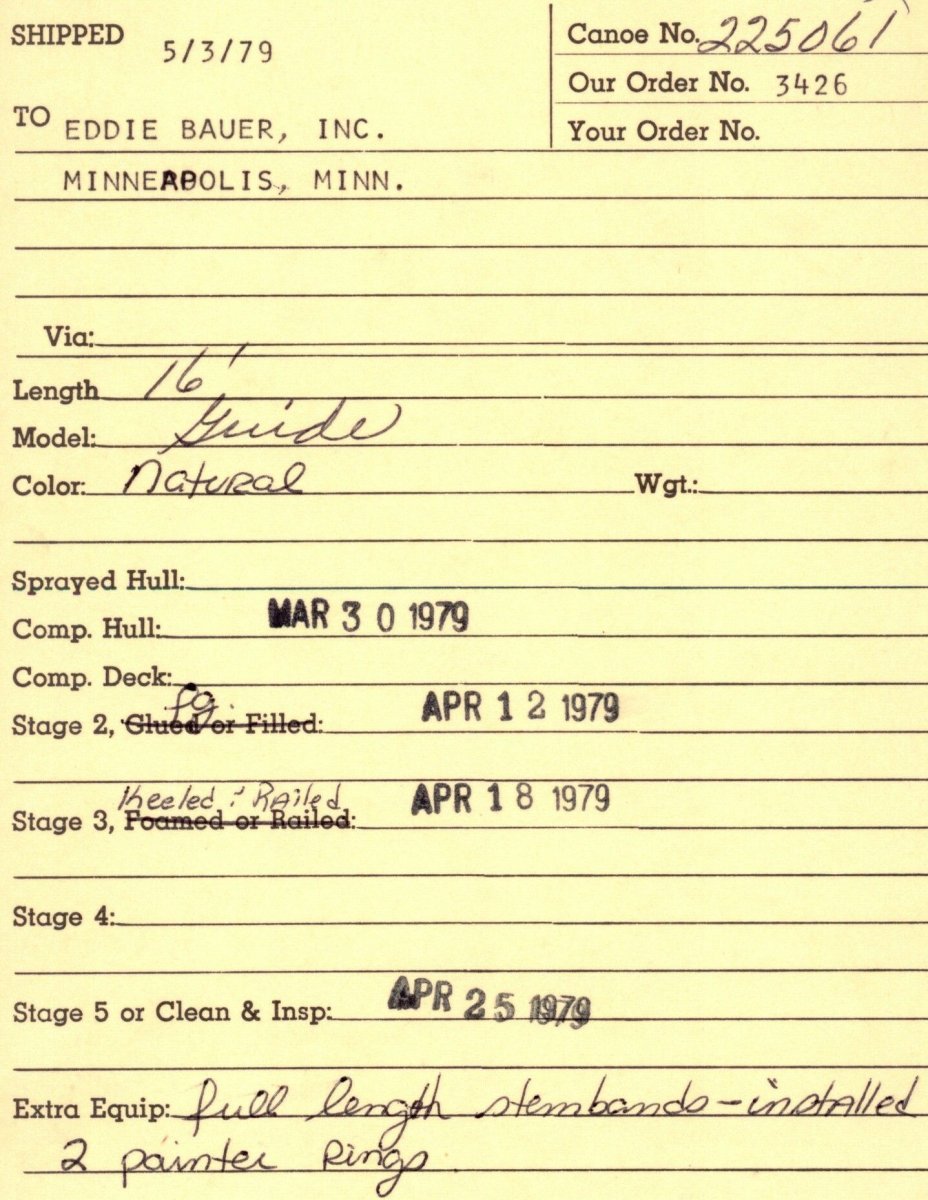 SHIPPED 5/3/79
Canoe No. 225061
Our Order No. 3426
TO EDDIE BAUER, INC.
Your Order No.
MINNEAPOLIS, MINN.
Via:
Length 16'
Model: Guide
Color: Natural Wgt.:
Sprayed Hull:
Comp. Hull: MAR 30 1979
Comp. Deck:
fg.
Stage 2, Glued or Filled: APR 12 1979
Keeled & Railed
Stage 3, Foamed or Railed: APR 18 1979
Stage 4:
Stage 5 or Clean & Insp: APR 25 1979
Extra Equip: full length stembands - installed
2 painter rings.